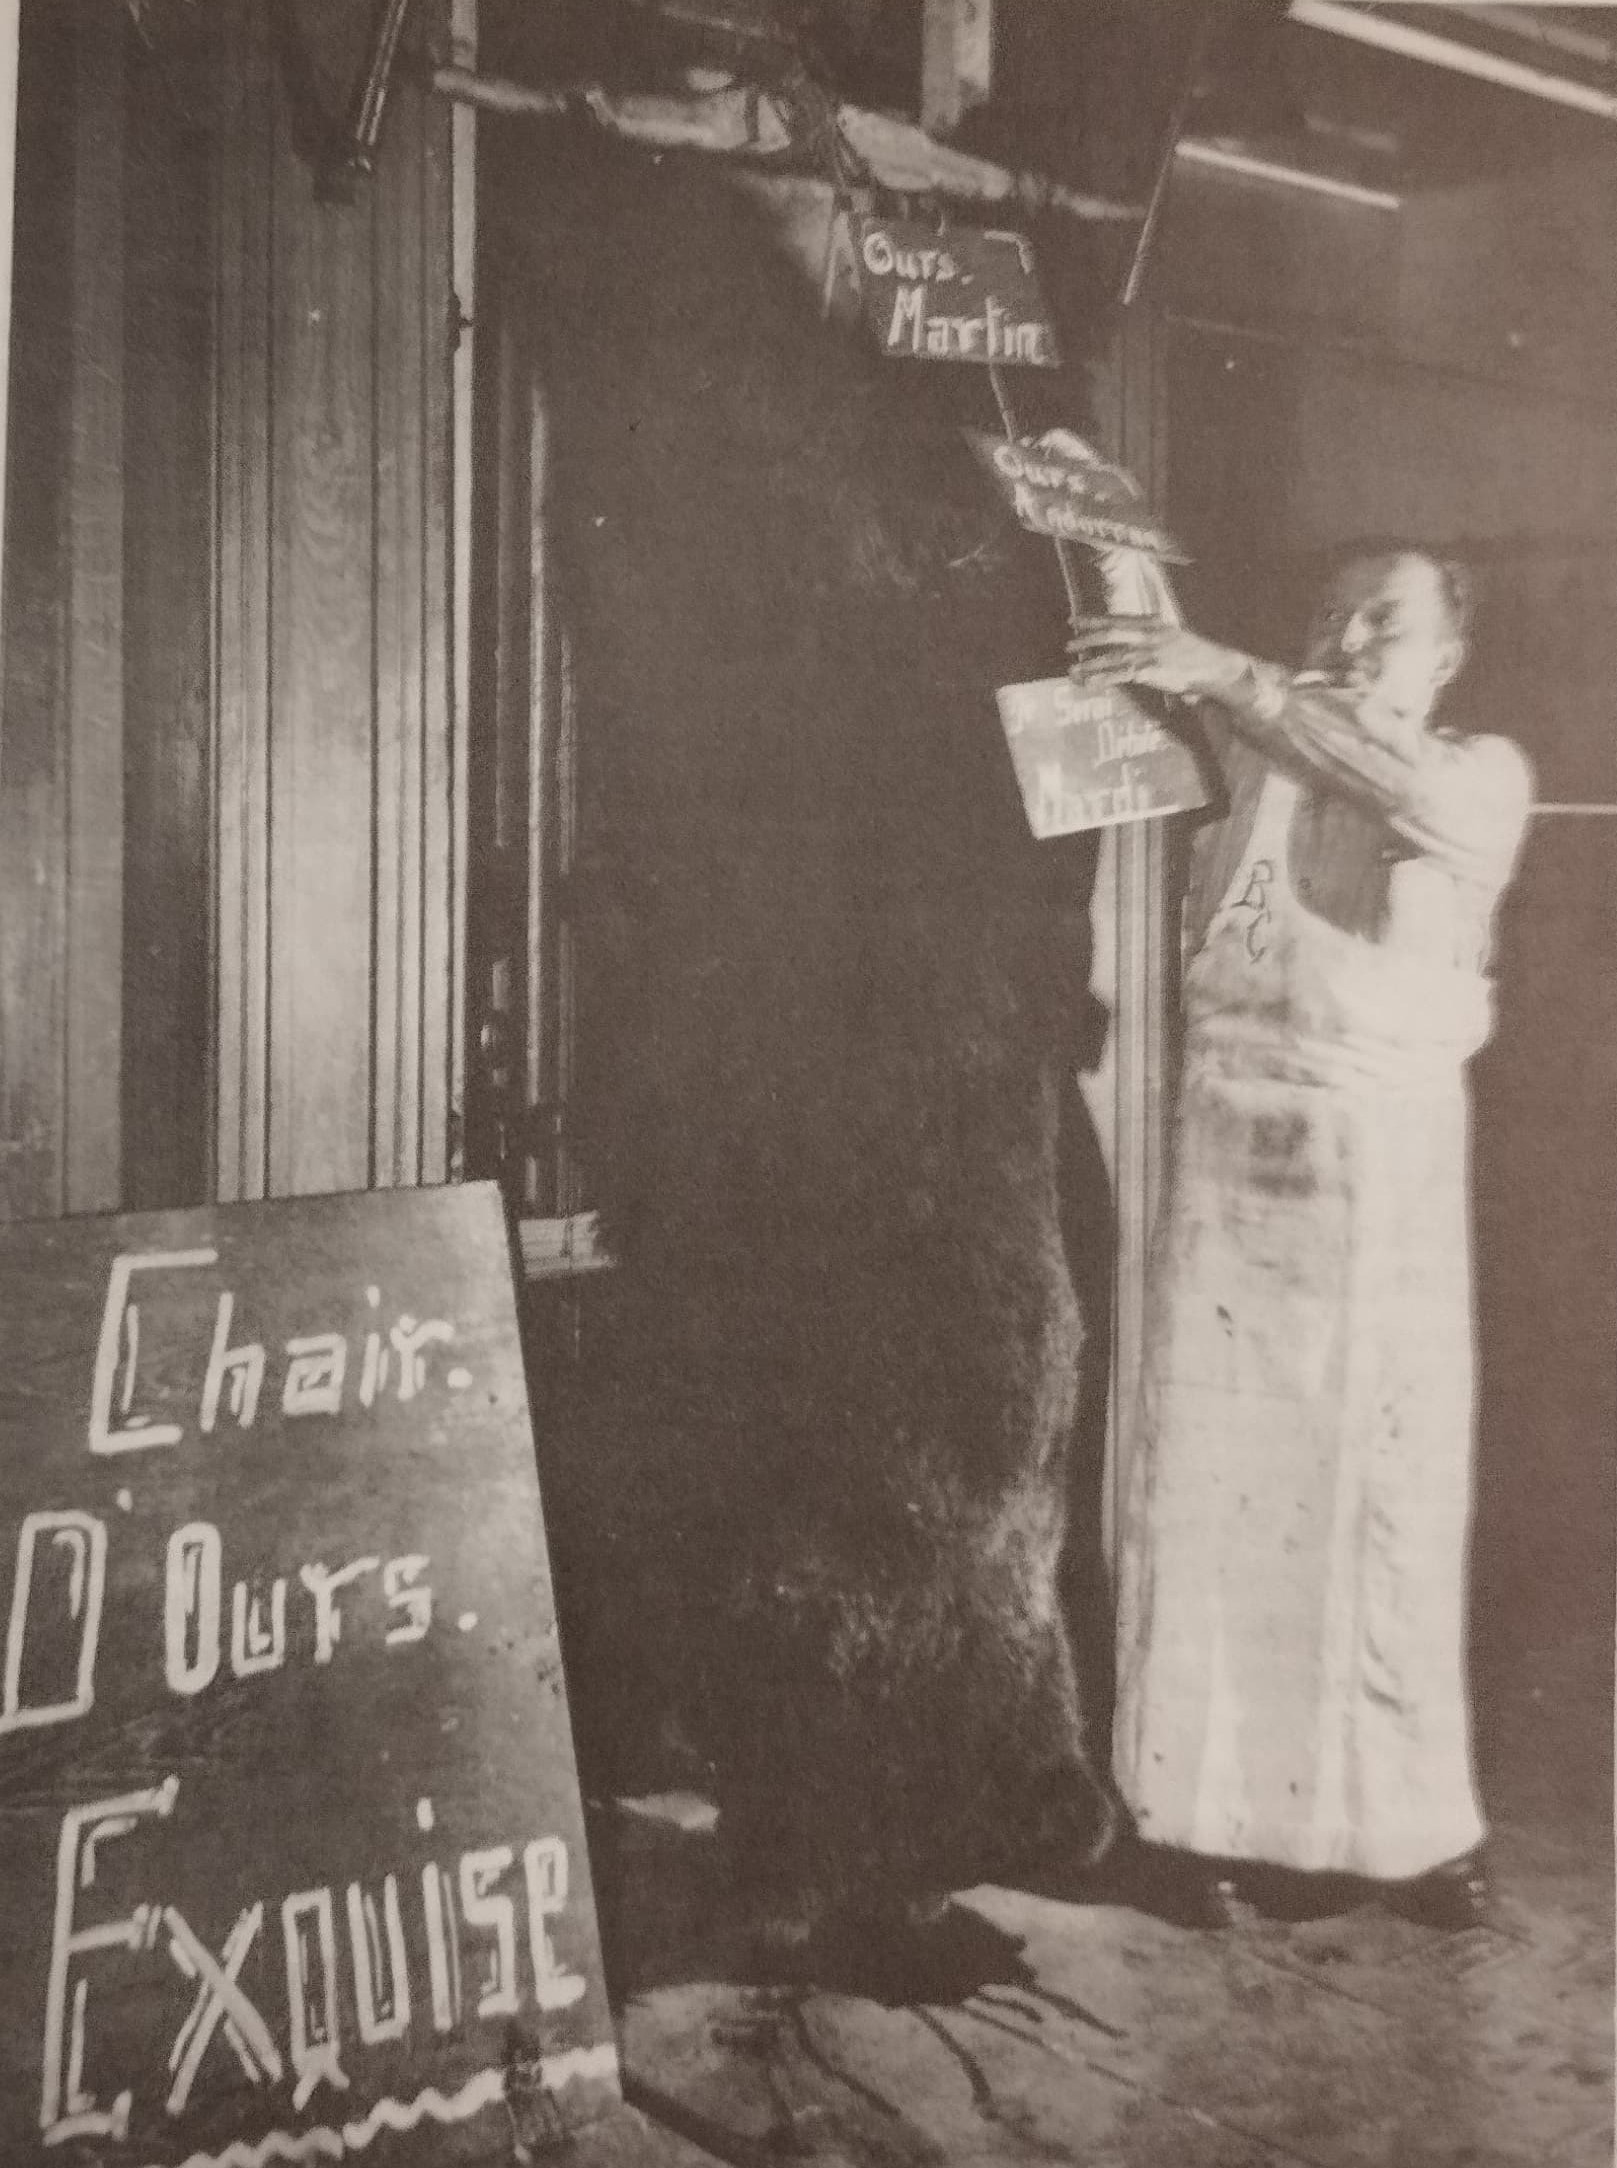 Ours.
Martin
Ours.
Je Serai
Mardi
BC
Chair.
D'Ours.
Exquise